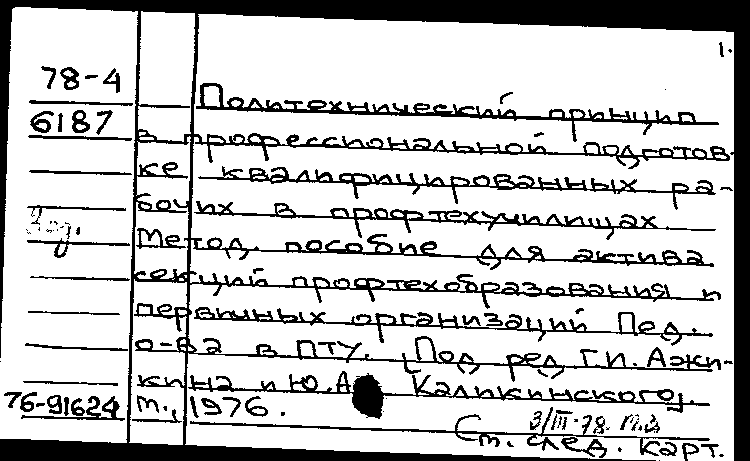 1.
78-4
6187
Политехнический принцип
в профессиональной подготов-
ке квалифицированных ра-
бочих в профтехучилищах.
Метод. пособие для актива
секций профтехобразования и
первичных организаций Пед.
о-ва в ПТУ. [Под ред. Г.И. Ажи-
кина и Ю.А. Каликинского].
76-91624 м., 1976.
3/III-78.
См. след. карт.